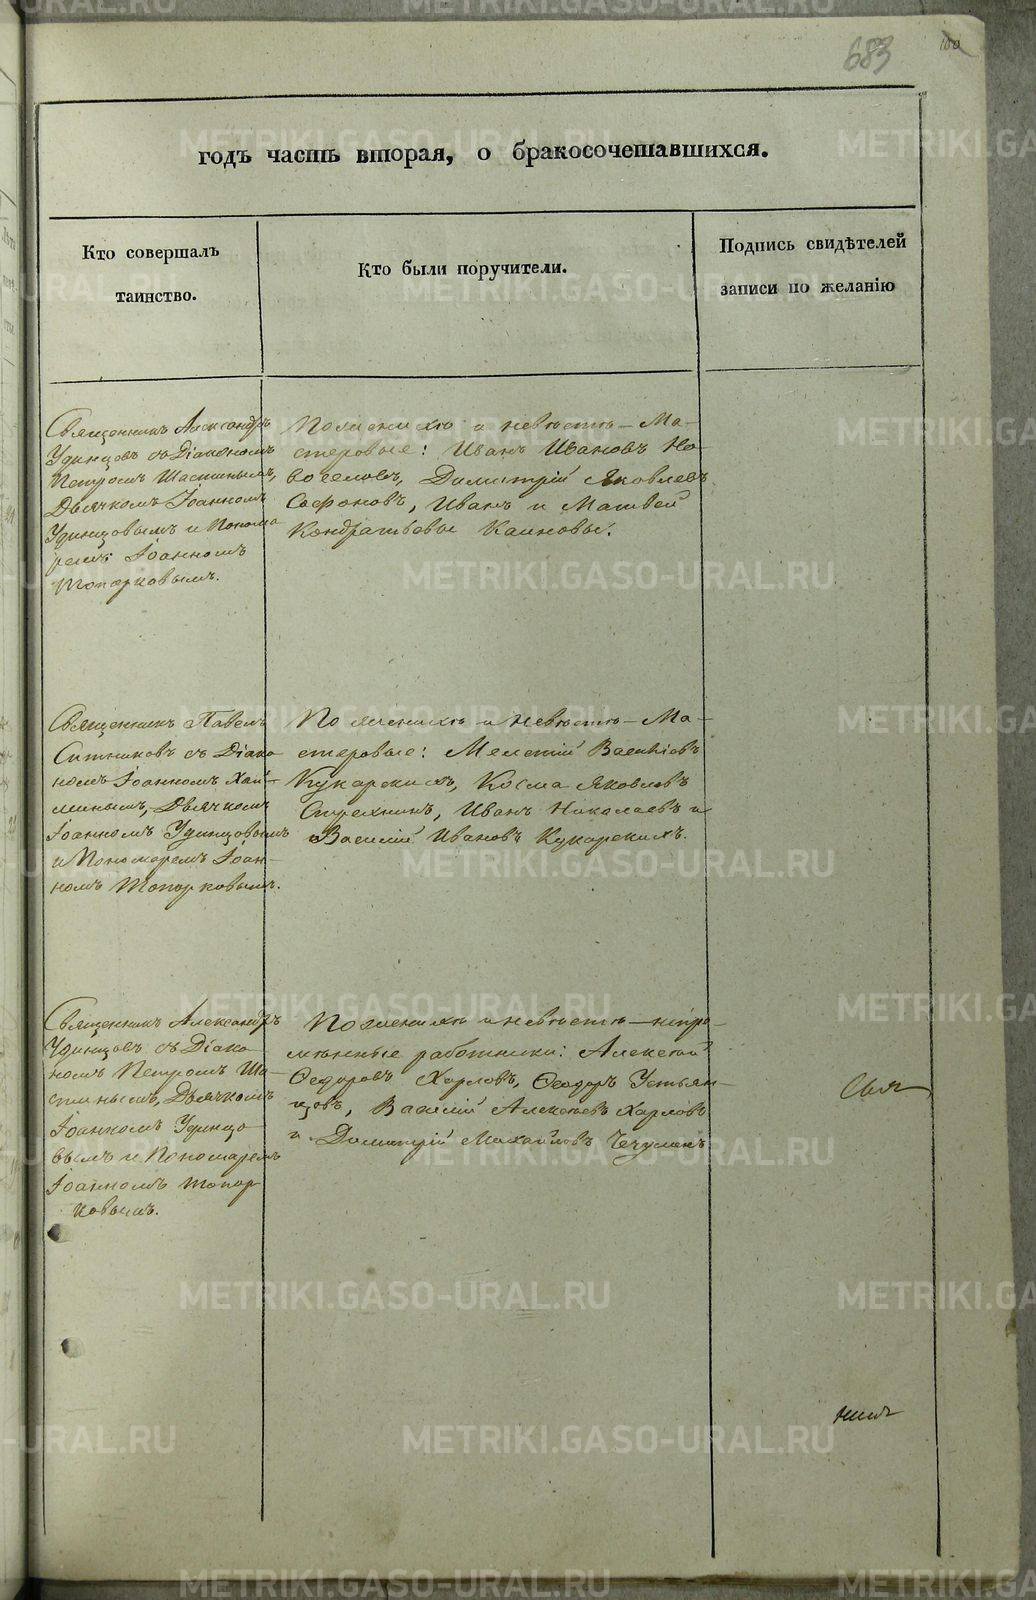 683
180
годъ часть вторая, о бракосочетавшихся.
Кто совершалъ
таинство.
Кто были поручители.
Подпись свидѣтелей
записи по желанію
Священникъ Александръ
Удинцовъ съ Діакономъ
Петромъ Шастинымъ,
Дьячкомъ Іоанномъ
Удинцовымъ и Понома
ремъ Іоанномъ
Топорковымъ.
По женихѣ и невѣстѣ – Ма-
стеровые: Иванъ Ивановъ Но-
воселовъ, Димитрій Яковлевъ
Сафоновъ, Иванъ и Матвей
Кондратьевы Каиновы.
Священникъ Павелъ
Ситниковъ съ Діако
номъ Іоанномъ
Дьячкомъ
Іоанномъ Удинцовымъ
и Пономаремъ Іоан-
номъ Топорковымъ.
По женихѣ и невѣстѣ – Ма-
стеровые: Мелетій Васильевъ
Кукарскихъ, Косма Яковлевъ
Иванъ Николаевъ и
Василій Ивановъ Кукарскихъ.
Священникъ Александръ
Удинцовъ съ Діако
номъ Петромъ Ша-
стинымъ, Дьячкомъ
Іоанномъ Удинцо
вымъ и Пономаремъ
Іоанномъ Топор
ковымъ.
По женихѣ и невѣстѣ – непре-
мѣнные работники: Алексѣй
Ѳедоровъ Харловъ, Ѳеодоръ Устьян-
цовъ, Василій Алексѣевъ Харловъ
и Димитрій Михайловъ Чечулинъ
METRIKI.GASO-URAL.RU